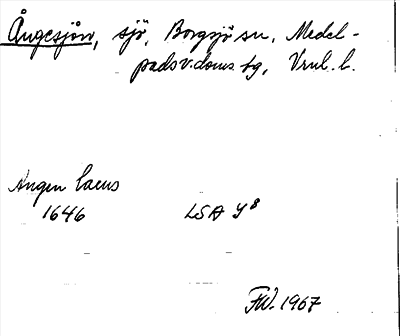 Ångesjön, sjö, Borgsjö sn, Medel-
pads v. doms. tg, Vrnl. l.
Angen lacus
1646 LSA Y8
FW. 1967